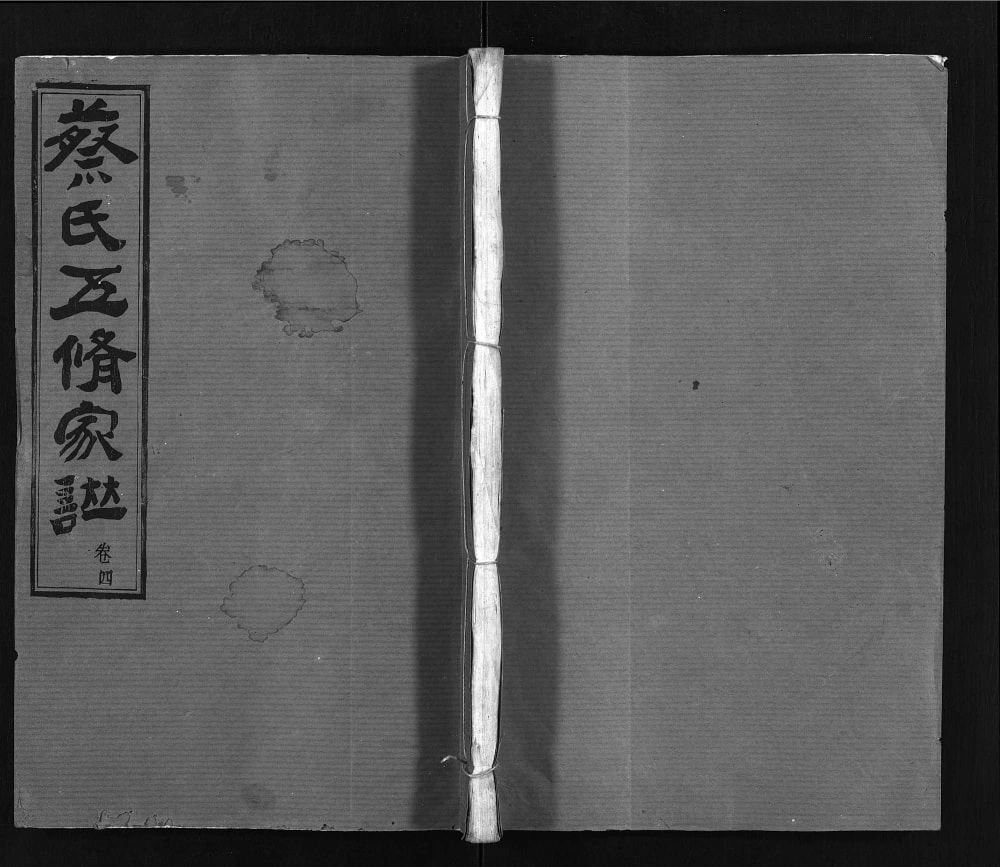 蔡氏五脩家譜
卷四